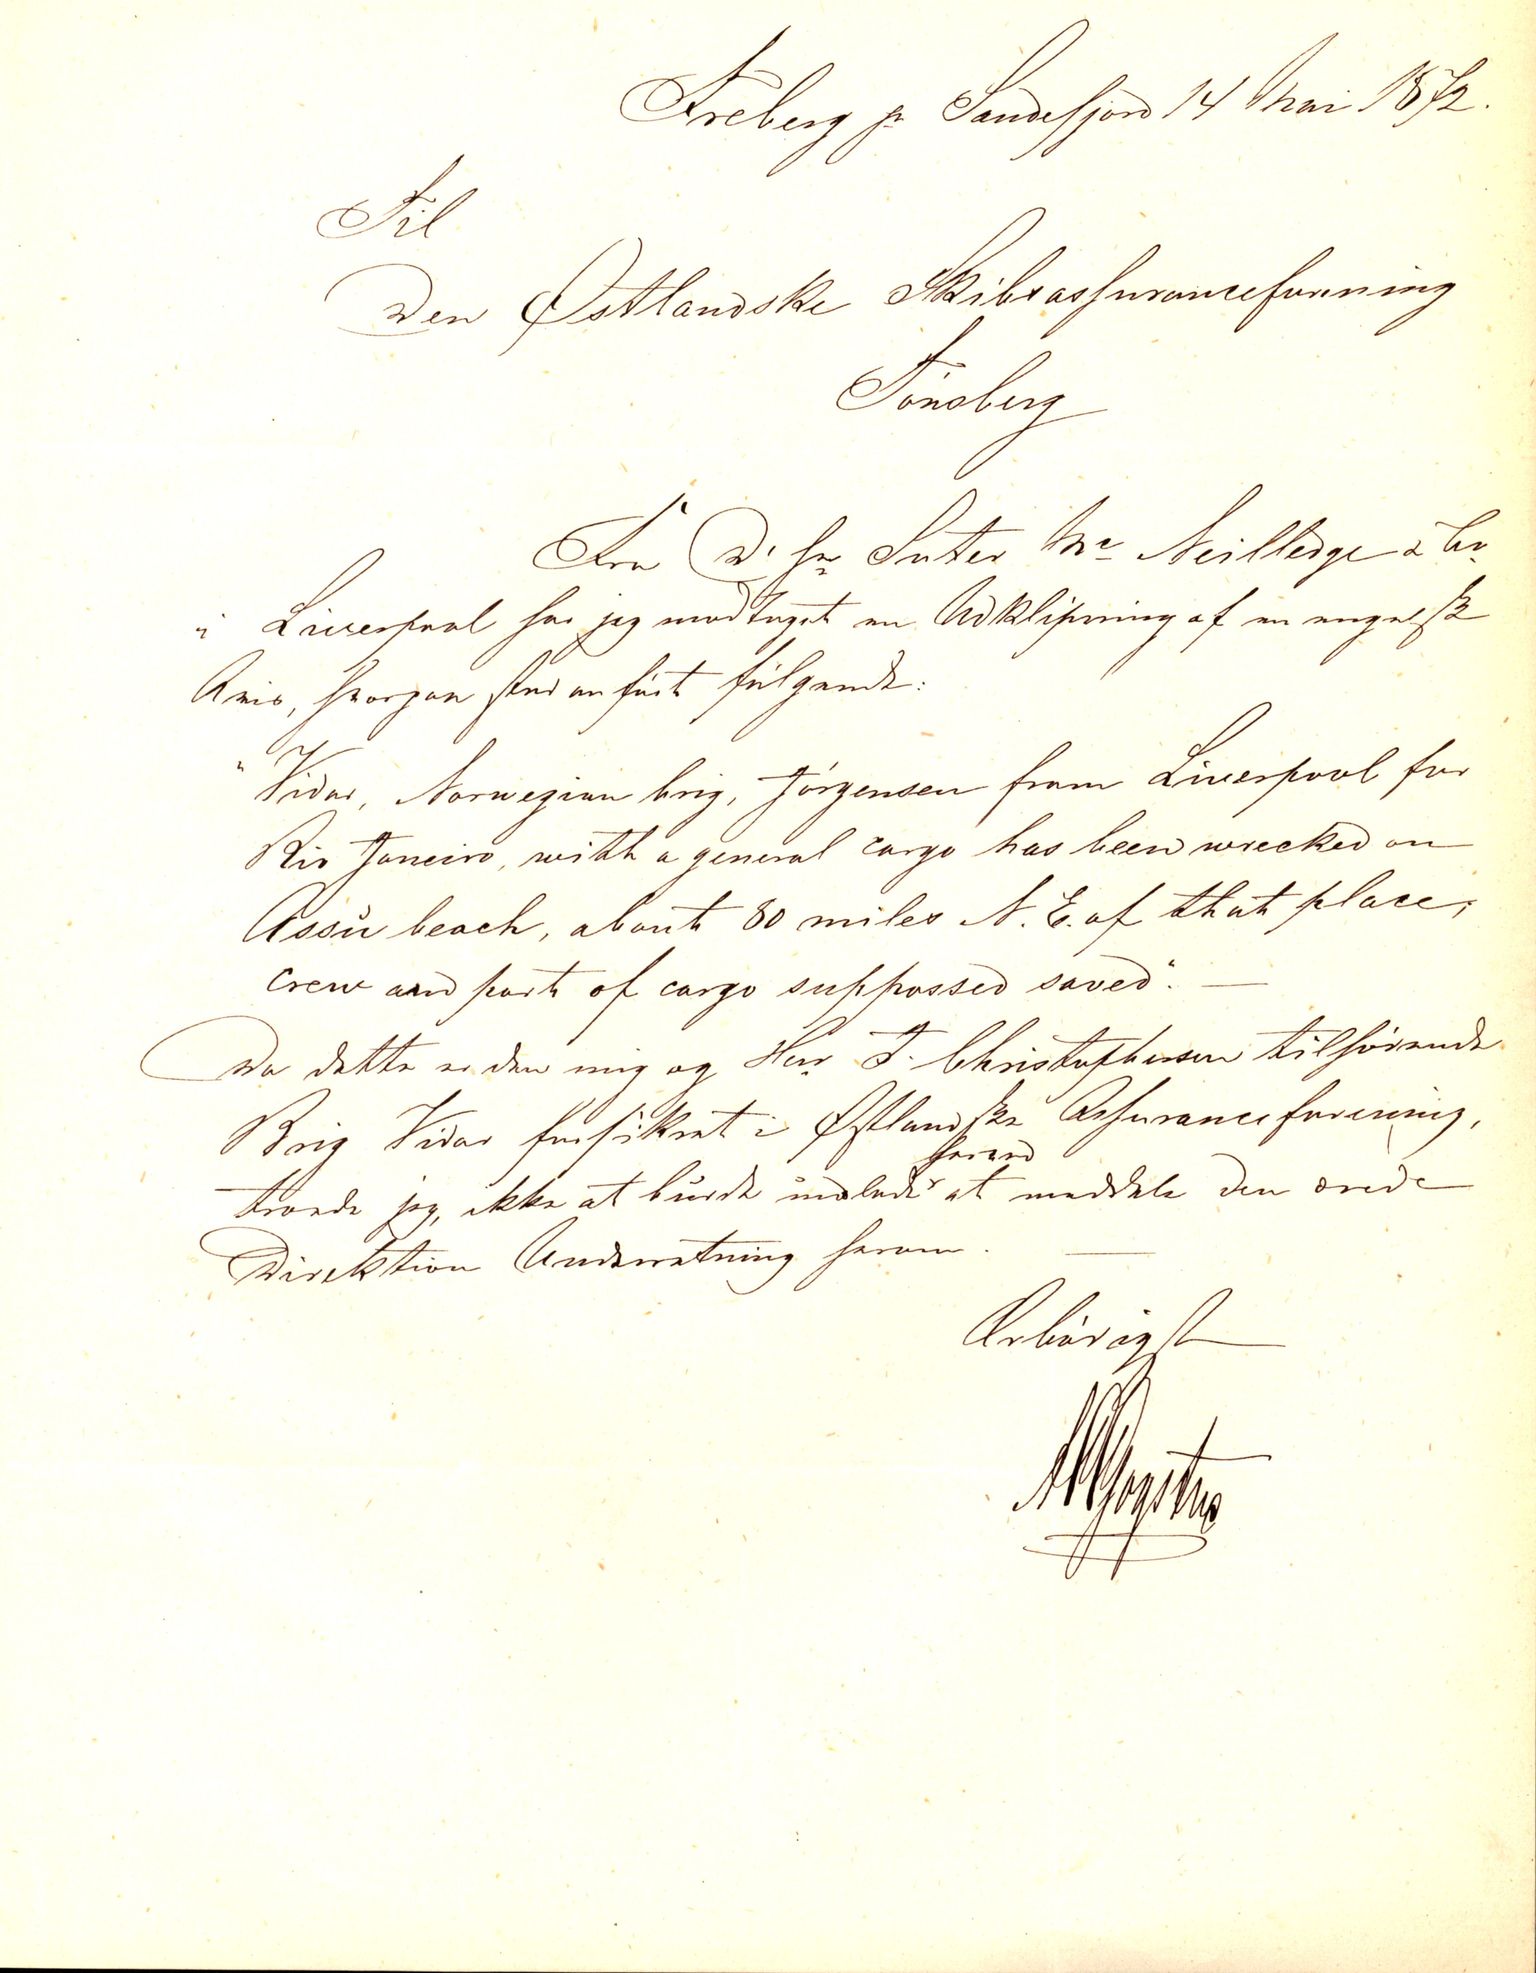 Freberg pr Sandefjord 14 Mai 1872.
Til
Den Østlandske Skibsassuranceforening
Tönsberg
Fra D' Hrr Suter Mc Neilledge & Co.
i Liverpool har jeg modtaget en Udklipning af en engelsk
Avis, hvorpaa staar anført følgende:
"Vidar, Norwegian brig, Jörgensen from Liverpool for
Rio Janeiro, with a general cargo has been wrecked on
Assu beach, about 80 miles N. E. of that place;
crew and part of cargo suppossed saved". —
Da dette er den mig og Herr F. Christophersen tilhörende
Brig Vidar forsikret i Østlandske Assuranceforening,
troede jeg, ikke at burde undlade herved at meddele den ærede
Direktion Underretning herom. —
Ærbödigst